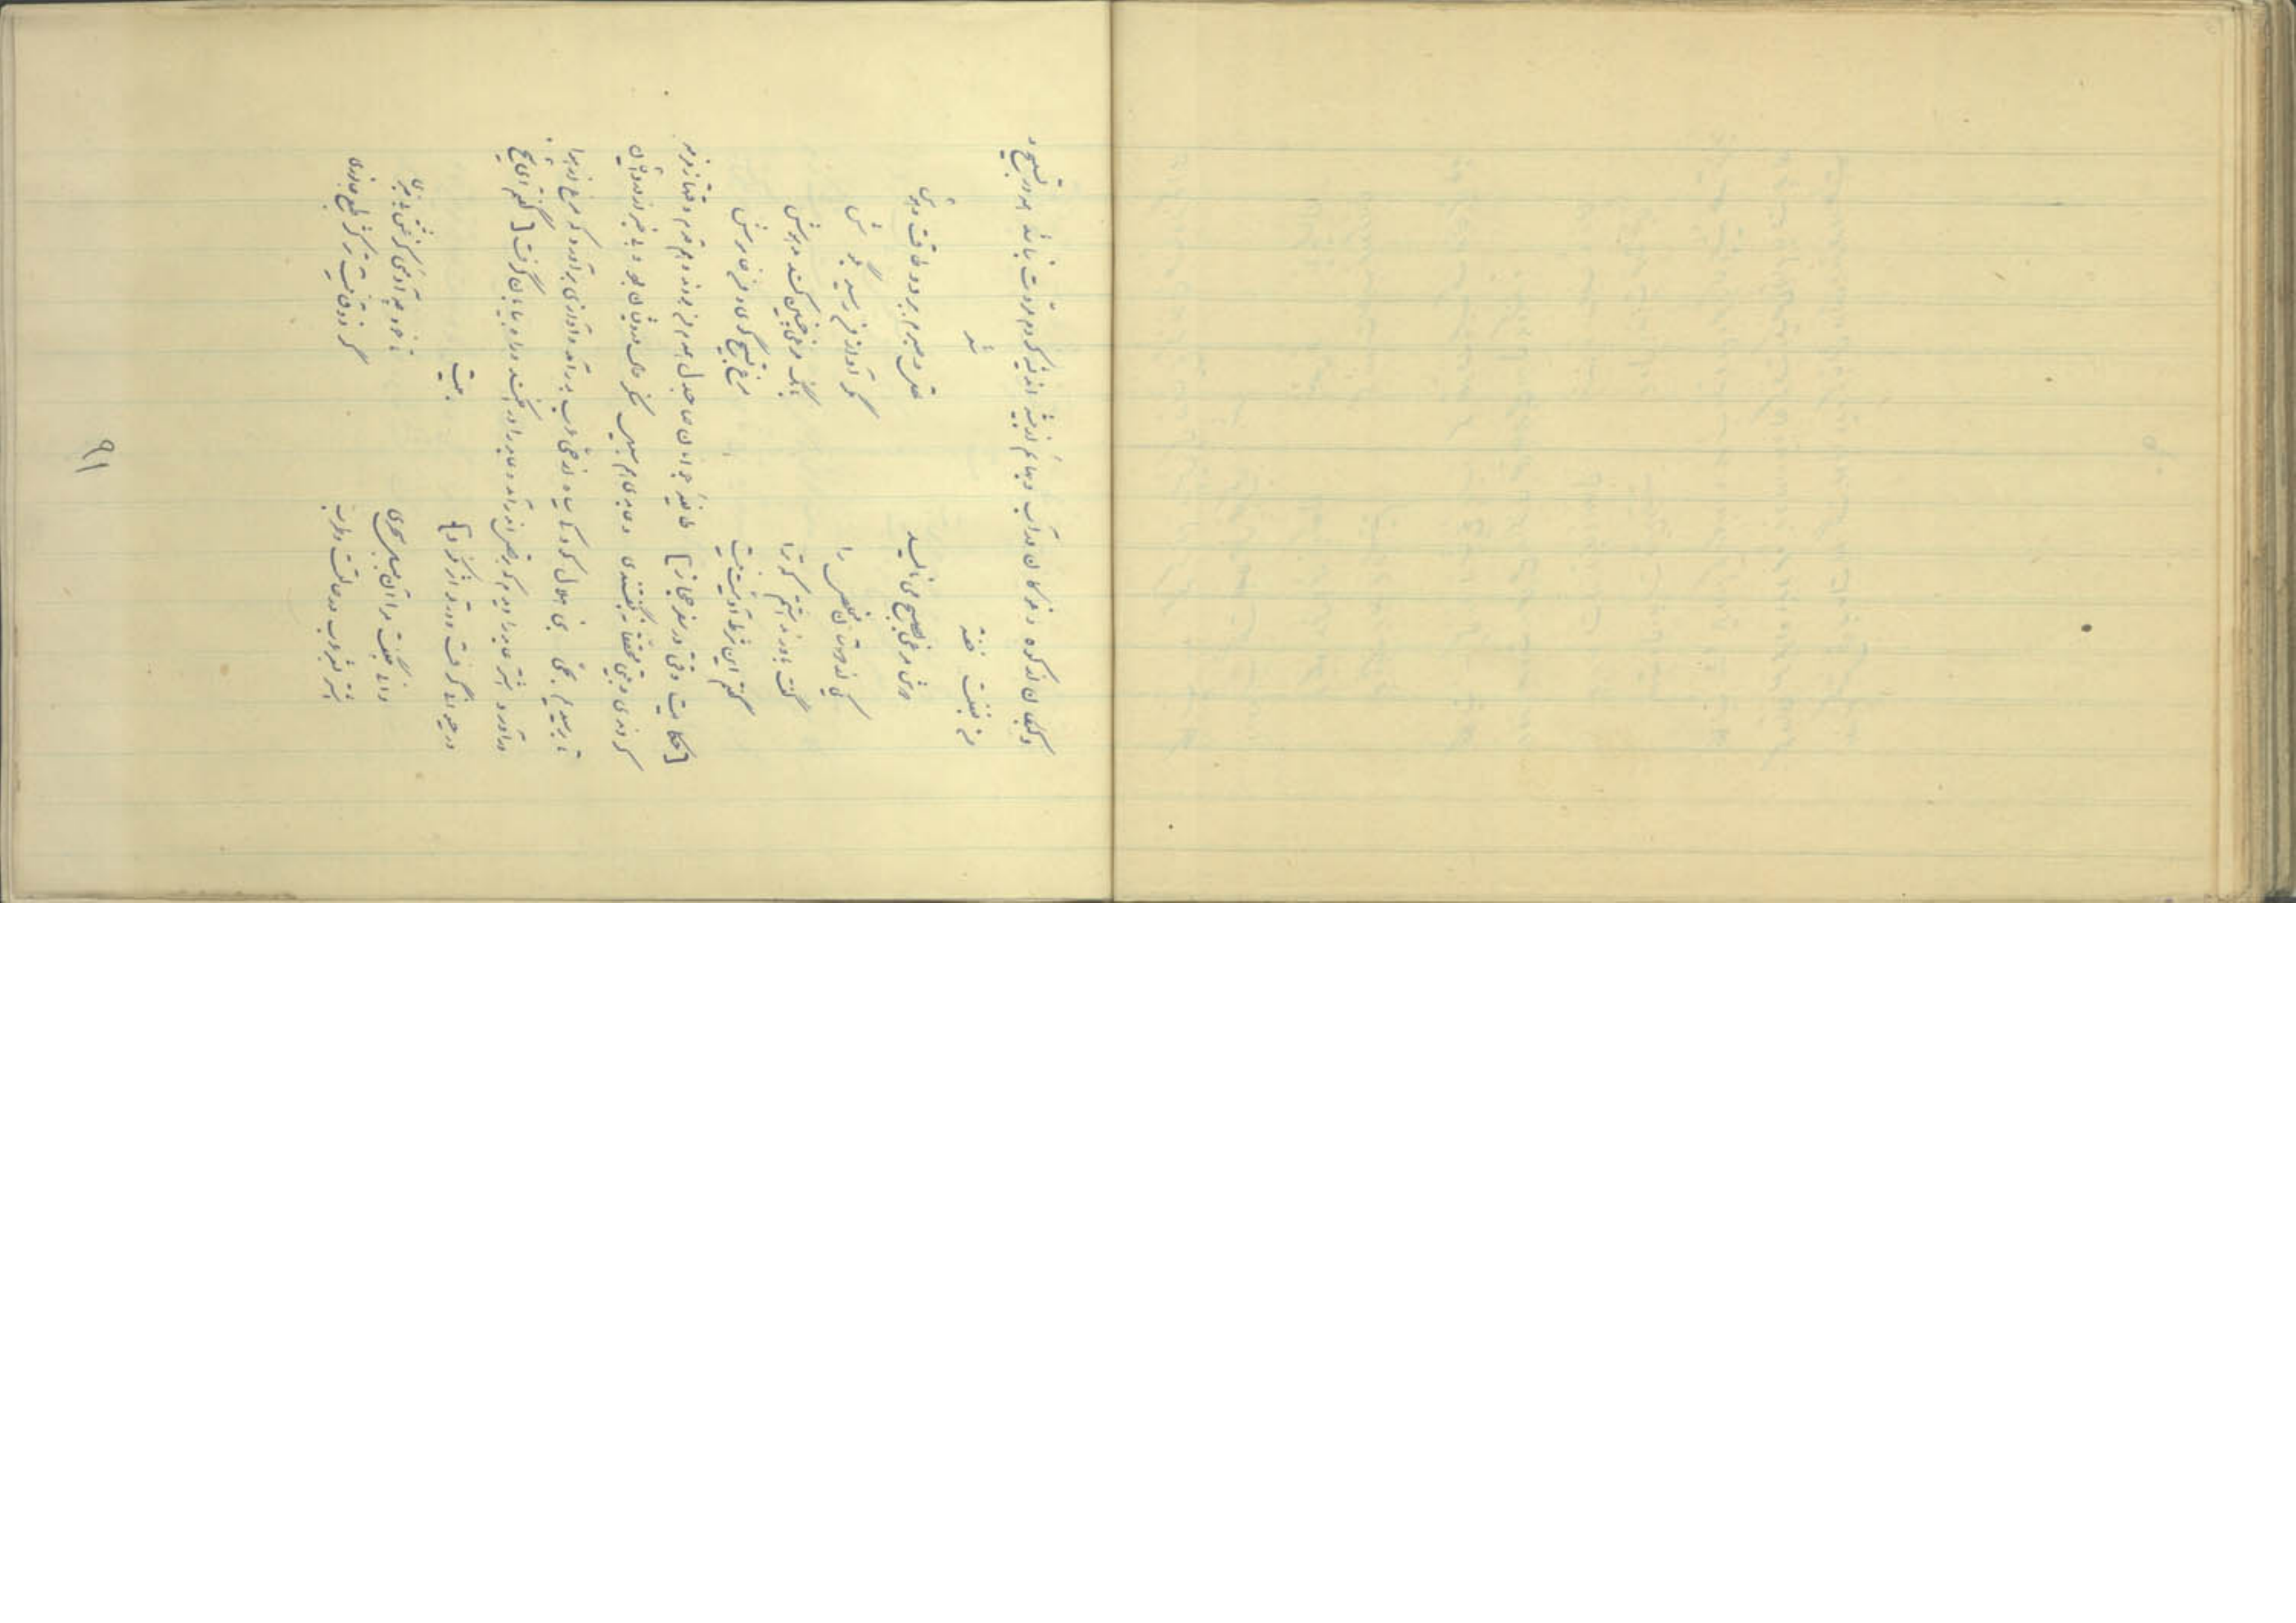 و کبکان از کوه و غوکان در آب و بهائم از بیشه اندیشه کردم مروت نباشد همه در تسبیح و
من بغفلت خفته شعر
دوش مرغی بصبح می نالید عقل و صبرم ببرد و طاقت و هوش
یکی از دوستان مخلص را مگر آواز من رسید بگوش
گفت باور نداشتم که ترا بانگ مرغی چنین کند مدهوش
گفتم این شرط آدمیت نیست مرغ تسبیح گوی و من خاموش
[حکایت وقتی در سفر حجاز] طائفه جوانان صاحبدل همدم من بودند و هم قدم وقتها زمزمه
کردندی و بیتی محققانه بگفتندی و عابدی هم در سبیل منکر حال درویشان بود و بی خبر از درد ایشان
تا برسیدیم بنخلی بنی هلال کودکی سیاه از حی عرب بدر آمد و آوازی برآورد که مرغ از هوا
درآورد اشتر عابد را دیدم که برقص اندر آمد و عابد را بینداخت و راه بیابان گرفت [گفتم ای شیخ
در حیوانی گرفت و در تو اثر نکرد] بیت
دانی چه گفت مرا آن بلبل سحری تو خود چه آدمئی کز عشق بیخبری
اشتر بشعر عرب در حالتست و طرب گر ذوق نیست ترا کژ طبع جانوری
۹۱